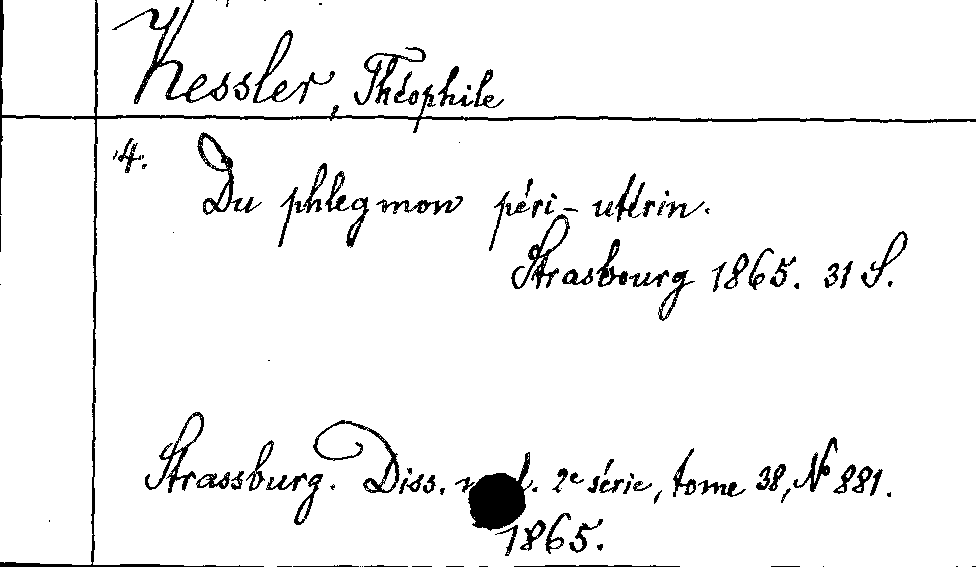 Kessler, Théophile
4.
Du phlegmon péri-utérin.
Strasbourg 1865. 31 S.
Strassburg. Diss. 2e série, tome 38, No 881.
1865.